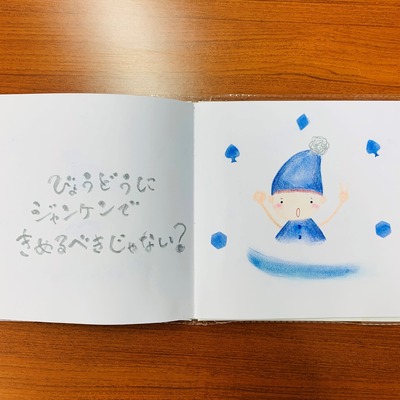 びょうどうに
ジャンケンで
きめるべきじゃない?